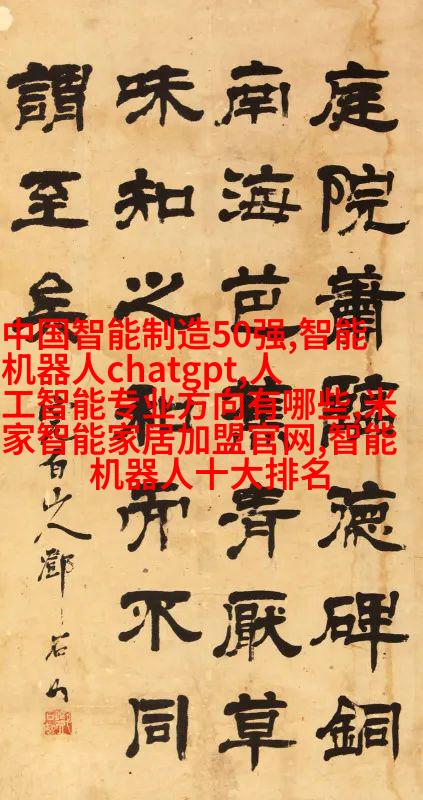 庭院蕭德碑銅
南海芭蕉青厭草
味知之和而不同
謂至矣
完白山人鄧石如
中国智能制造50强,智能
机器人chatgpt,人
工智能专业方向有哪些,米
家智能家居加盟官网,智能
机器人十大排名